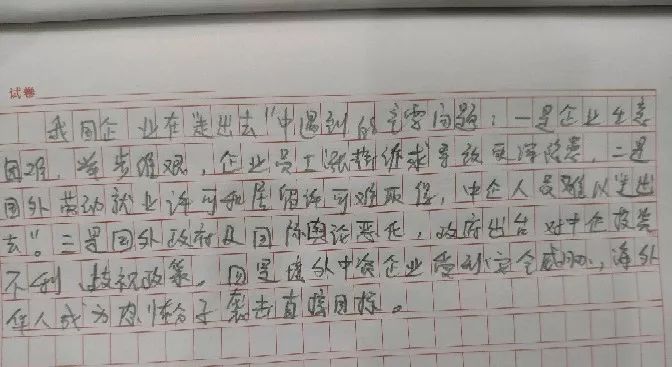 试卷
我国企业在"走出去"中遇到的主要问题：一是企业生意
困难，举步维艰，企业员工涨薪诉求导致
二是
国外劳动就业许可和居留许可难取得，中企人员难以"走出
去"。三是国外政府及国际舆论恶化，政府出台对中企投资
不利歧视政策。四是境外中资企业受到安全威胁，海外
华人成为恐怖分子袭击直接目标。